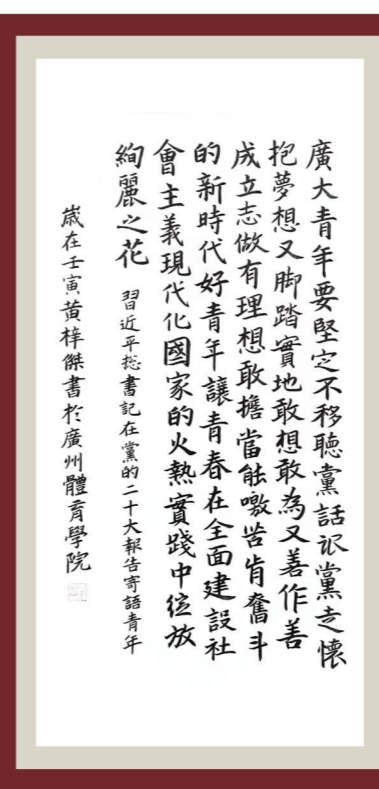 廣大青年要堅定不移聽黨話訳黨走懷
抱夢想又脚踏實地敢想敢為又善作善
成立志做有理想敢擔當能噉苦肯奮斗
的新時代好青年讓青春在全面建設社
會主義現代化國家的火熱實踐中绽放
絢麗之花
習近平総書記在黨的二十大報告寄語青年
歲在壬寅黄梓傑書於廣州體育學院